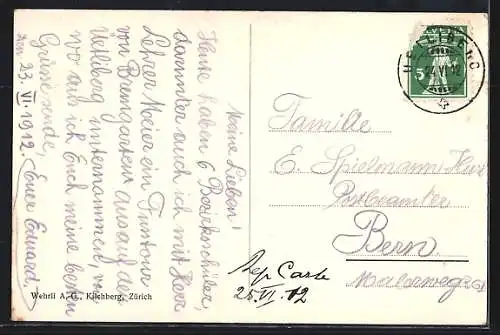 Meine Lieben!
Heute haben 6 Bezirksschüler,
darunter auch ich mit Herr
Lehrer Meier ein Turntour
von Bremgarten aus auf den
Uetliberg unternommen, von
wo aus ich Euch meine besten
Grüsse sende, Euer Eduard.
den 23. VI. 1912.
Wehrli A. G., Kilchberg, Zürich
UETLIBERG
24.VI.12
5
Familie
E. Spielmann
Postbeamter
Bern.
Malerweg
Rep Carte
25. VI. 12